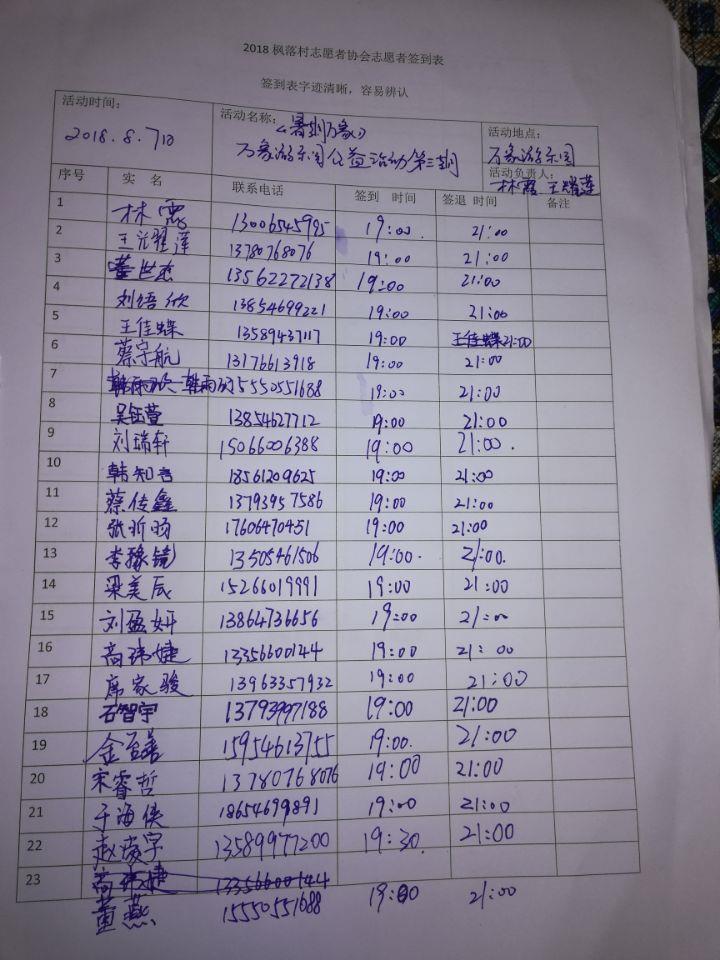 2018 枫落村志愿者协会志愿者签到表
签到表字迹清晰，容易辨认
活动时间： 活动名称： 《暑到万象》 活动地点：
2018.8.7日 万象游乐园公益活动第三期 万象游乐园
活动负责人：
林霞 王耀莲
序号 实 名 联系电话 签到 时间 签退 时间 备注
1 林霞 13006545995 19:00 21:00
2 13780768076 19:00 21:00
3 董世杰 13562272138 19:00 21:00
4 刘语欣 13854699221 19:00 21:00
5 王佳蝶 13589437117 19:00 王佳蝶 21:00
6 蔡宇航 13176613918 19:00 21:00
7 15550551688 19:00 21:00
8 吴钰萱 13854627712 19:00 21:00
9 刘瑞轩 15066006388 19:00 21:00.
10 韩知言 18561209625 19:00 21:00
11 蔡传鑫 13793957586 19:00 21:00
12 张昕旸 17606470451 19:00 21:00
13 13505461506 19:00. 21:00.
14 梁美辰 15266019991 19:00 21:00
15 刘盈妍 13864736656 19:00 21:00
16 高玮婕 13356600144 19:00 21:00
17 席家骏 13963357932 19:00 21:00
18 石智宇 13793997188 19:00 21:00
19 金至善 15954613755 19:00. 21:00
20 宋睿哲 13780768076 19:00 21:00
21 于海侠 18654699891 19:00 21:00
22 13589977200 19:30. 21:00
23 高玮婕 13356600144
董燕 15550551688 19:00 21:00